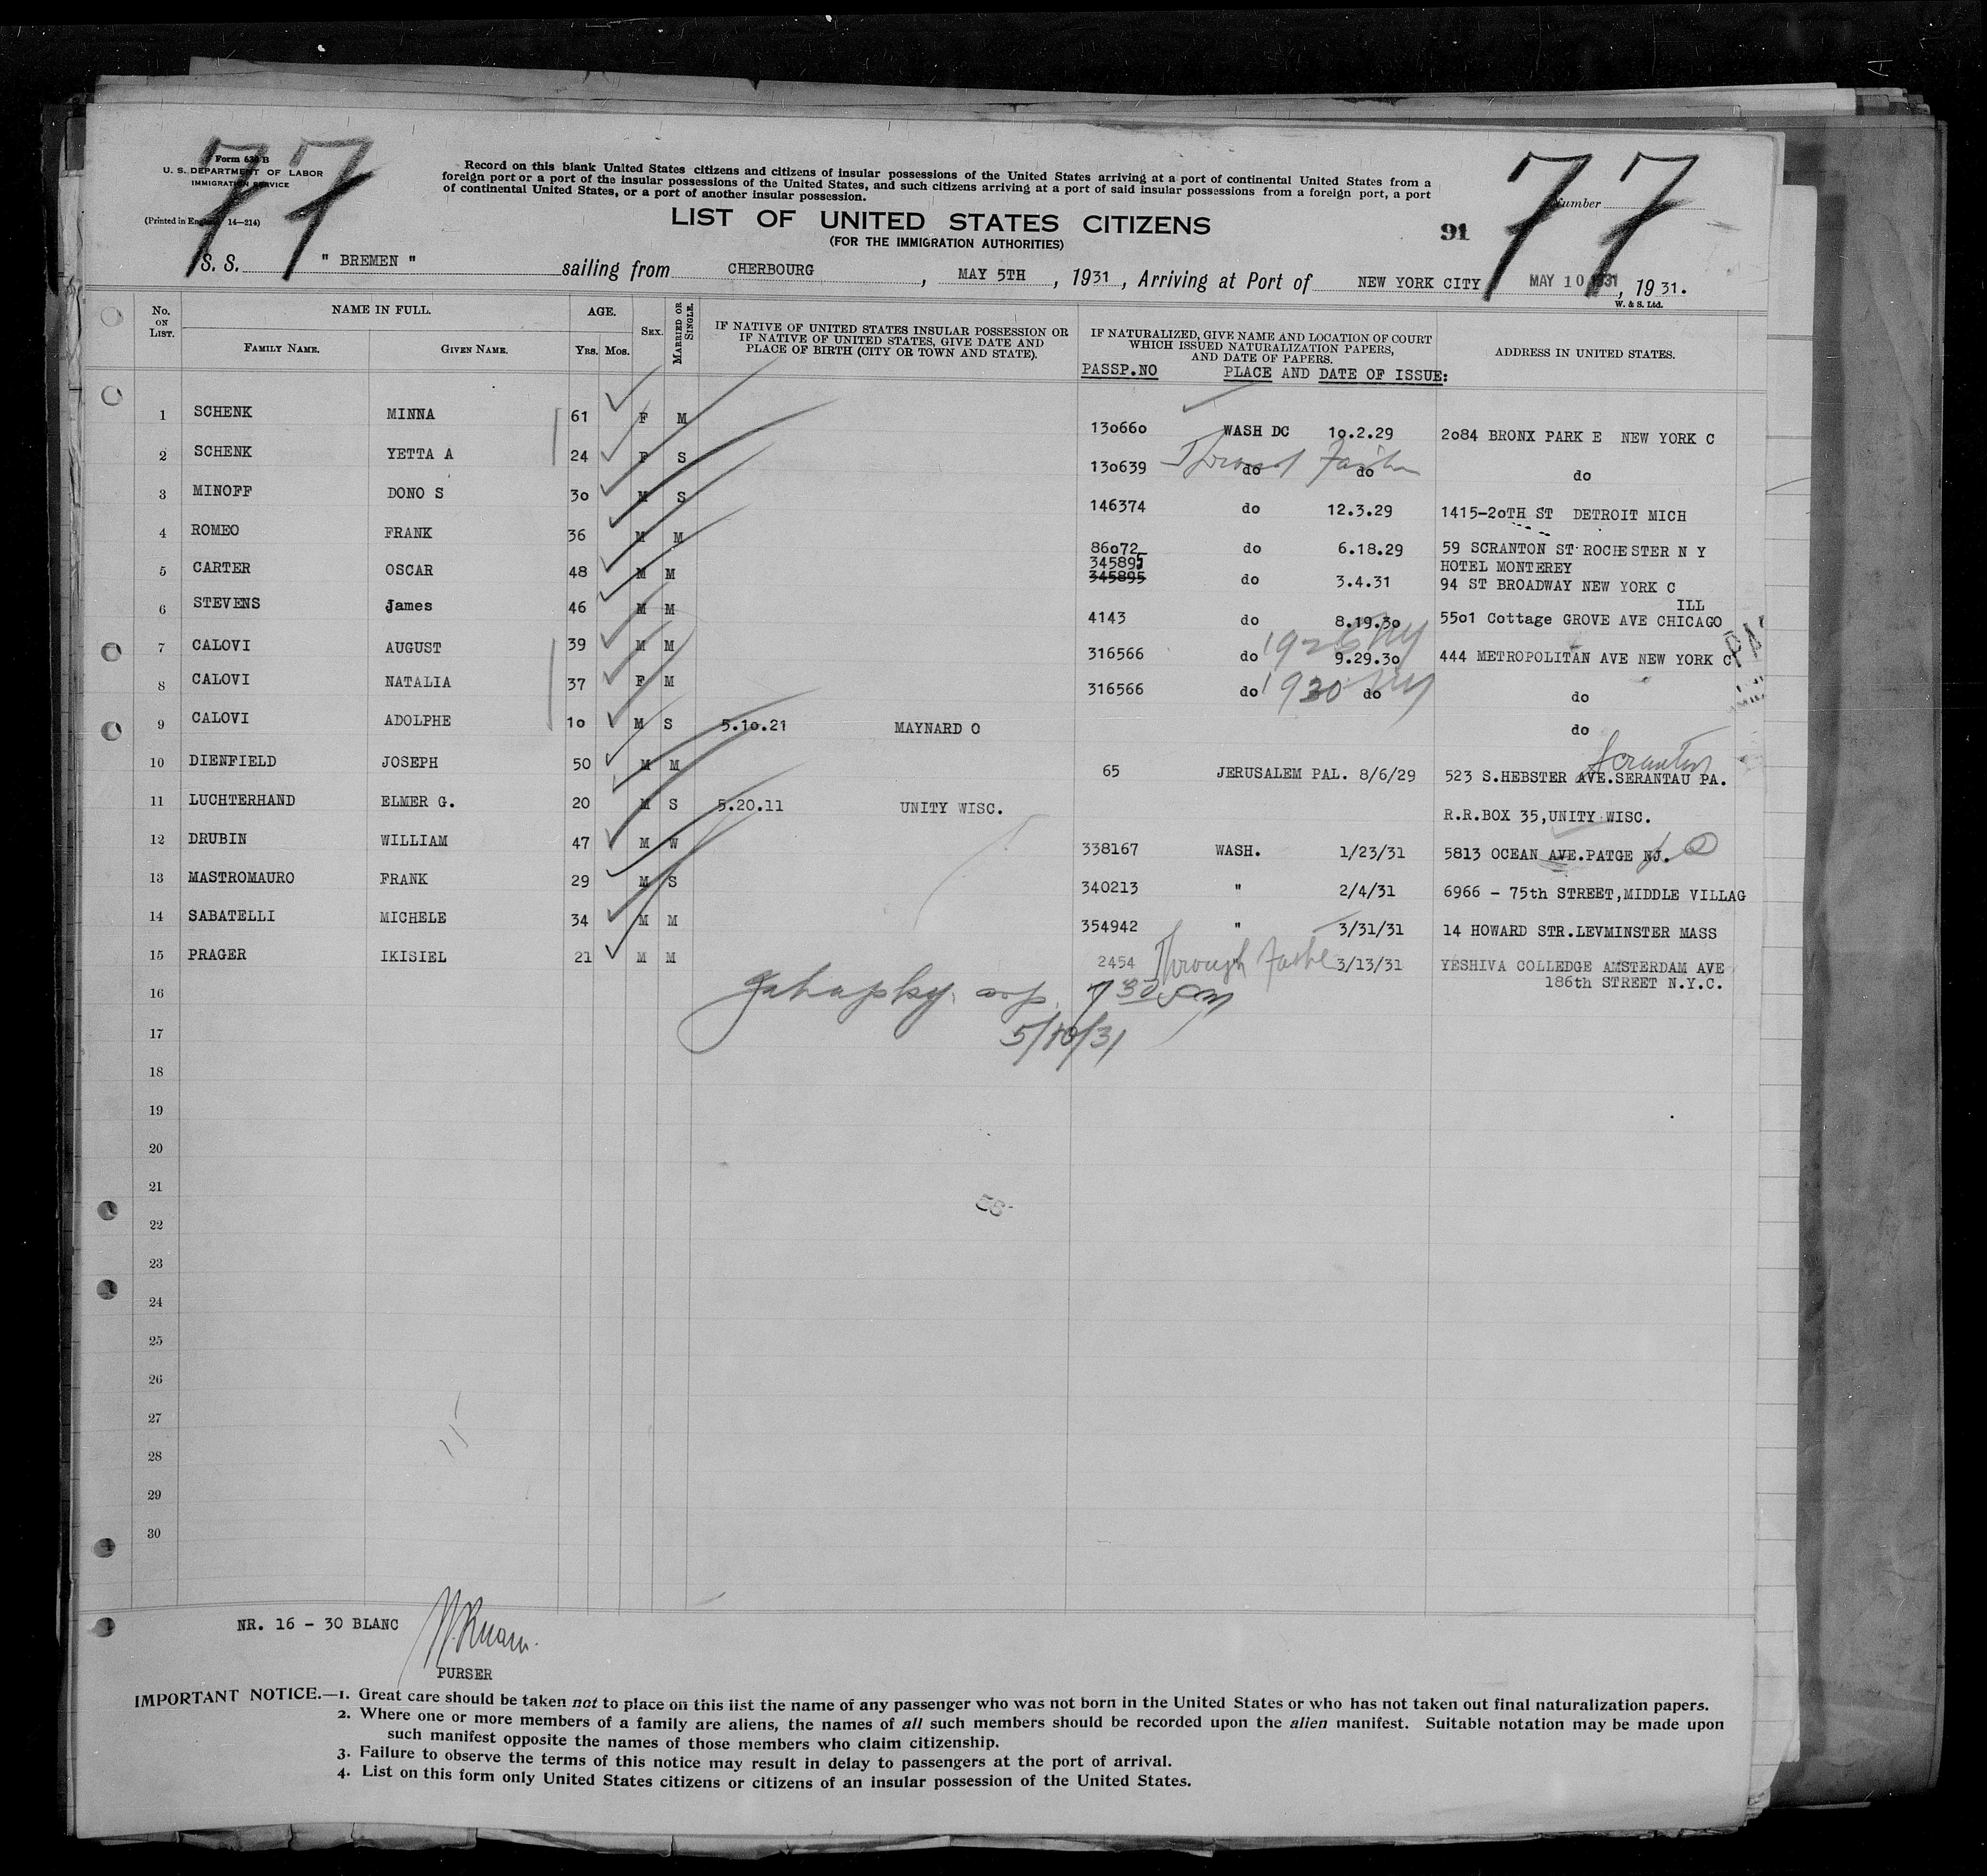 77
77
Form 630 B
U. S. DEPARTMENT OF LABOR
IMMIGRATION SERVICE
(Printed in England 14—214)
Record on this blank United States citizens and citizens of insular possessions of the United States arriving at a port of continental United States from a
foreign port or a port of the insular possessions of the United States, and such citizens arriving at a port of said insular possessions from a foreign port, a port
of continental United States, or a port of another insular possession.
Number
LIST OF UNITED STATES CITIZENS
(FOR THE IMMIGRATION AUTHORITIES)
91
S. S. " BREMEN " sailing from CHERBOURG , MAY 5TH , 1931 , Arriving at Port of NEW YORK CITY MAY 10 1931 , 1931.
W. & S. Ltd.
No. ON LIST. NAME IN FULL. AGE. SEX. MARRIED OR SINGLE. IF NATIVE OF UNITED STATES INSULAR POSSESSION OR IF NATIVE OF UNITED STATES, GIVE DATE AND PLACE OF BIRTH (CITY OR TOWN AND STATE). IF NATURALIZED, GIVE NAME AND LOCATION OF COURT WHICH ISSUED NATURALIZATION PAPERS, AND DATE OF PAPERS. ADDRESS IN UNITED STATES.
FAMILY NAME. GIVEN NAME. YRS. MOS. PASSP.NO PLACE AND DATE OF ISSUE:
1 SCHENK MINNA 61 F M 130660 WASH DC 10.2.29 2084 BRONX PARK E NEW YORK C
2 SCHENK YETTA A 24 F S 130639 do do do
3 MINOFF DONO S 30 M S 146374 do 12.3.29 1415-20TH ST DETROIT MICH
4 ROMEO FRANK 36 M M 86072 do 6.18.29 59 SCRANTON ST ROCHESTER N Y
345895 HOTEL MONTEREY
5 CARTER OSCAR 48 M M 345895 do 3.4.31 94 ST BROADWAY NEW YORK C
ILL
6 STEVENS James 46 M M 4143 do 8.19.30 5501 Cottage GROVE AVE CHICAGO
7 CALOVI AUGUST 39 M M 316566 do 1926 NY 9.29.30 444 METROPOLITAN AVE NEW YORK C
8 CALOVI NATALIA 37 F M 316566 do 1930 NY do do
9 CALOVI ADOLPHE 10 M S 5.10.21 MAYNARD O do
Scranton
10 DIENFIELD JOSEPH 50 M M 65 JERUSALEM PAL. 8/6/29 523 S.HEBSTER AVE.SERANTAU PA.
11 LUCHTERHAND ELMER G. 20 M S 5.20.11 UNITY WISC. R.R.BOX 35,UNITY WISC.
12 DRUBIN WILLIAM 47 M W 338167 WASH. 1/23/31 5813 OCEAN AVE.PATGE NJ.
13 MASTROMAURO FRANK 29 M S 340213 " 2/4/31 6966 - 75th STREET,MIDDLE VILLAG
14 SABATELLI MICHELE 34 M M 354942 " 3/31/31 14 HOWARD STR.LEVMINSTER MASS
15 PRAGER IKISIEL 21 M M 2454 Through Father 3/13/31 YESHIVA COLLEDGE AMSTERDAM AVE
186th STREET N.Y.C.
16
5/10/31
17
18
19
20
21
22
23
24
25
26
27
28
29
30
NR. 16 - 30 BLANC
PURSER
IMPORTANT NOTICE.—1. Great care should be taken not to place on this list the name of any passenger who was not born in the United States or who has not taken out final naturalization papers.
2. Where one or more members of a family are aliens, the names of all such members should be recorded upon the alien manifest. Suitable notation may be made upon
such manifest opposite the names of those members who claim citizenship.
3. Failure to observe the terms of this notice may result in delay to passengers at the port of arrival.
4. List on this form only United States citizens or citizens of an insular possession of the United States.